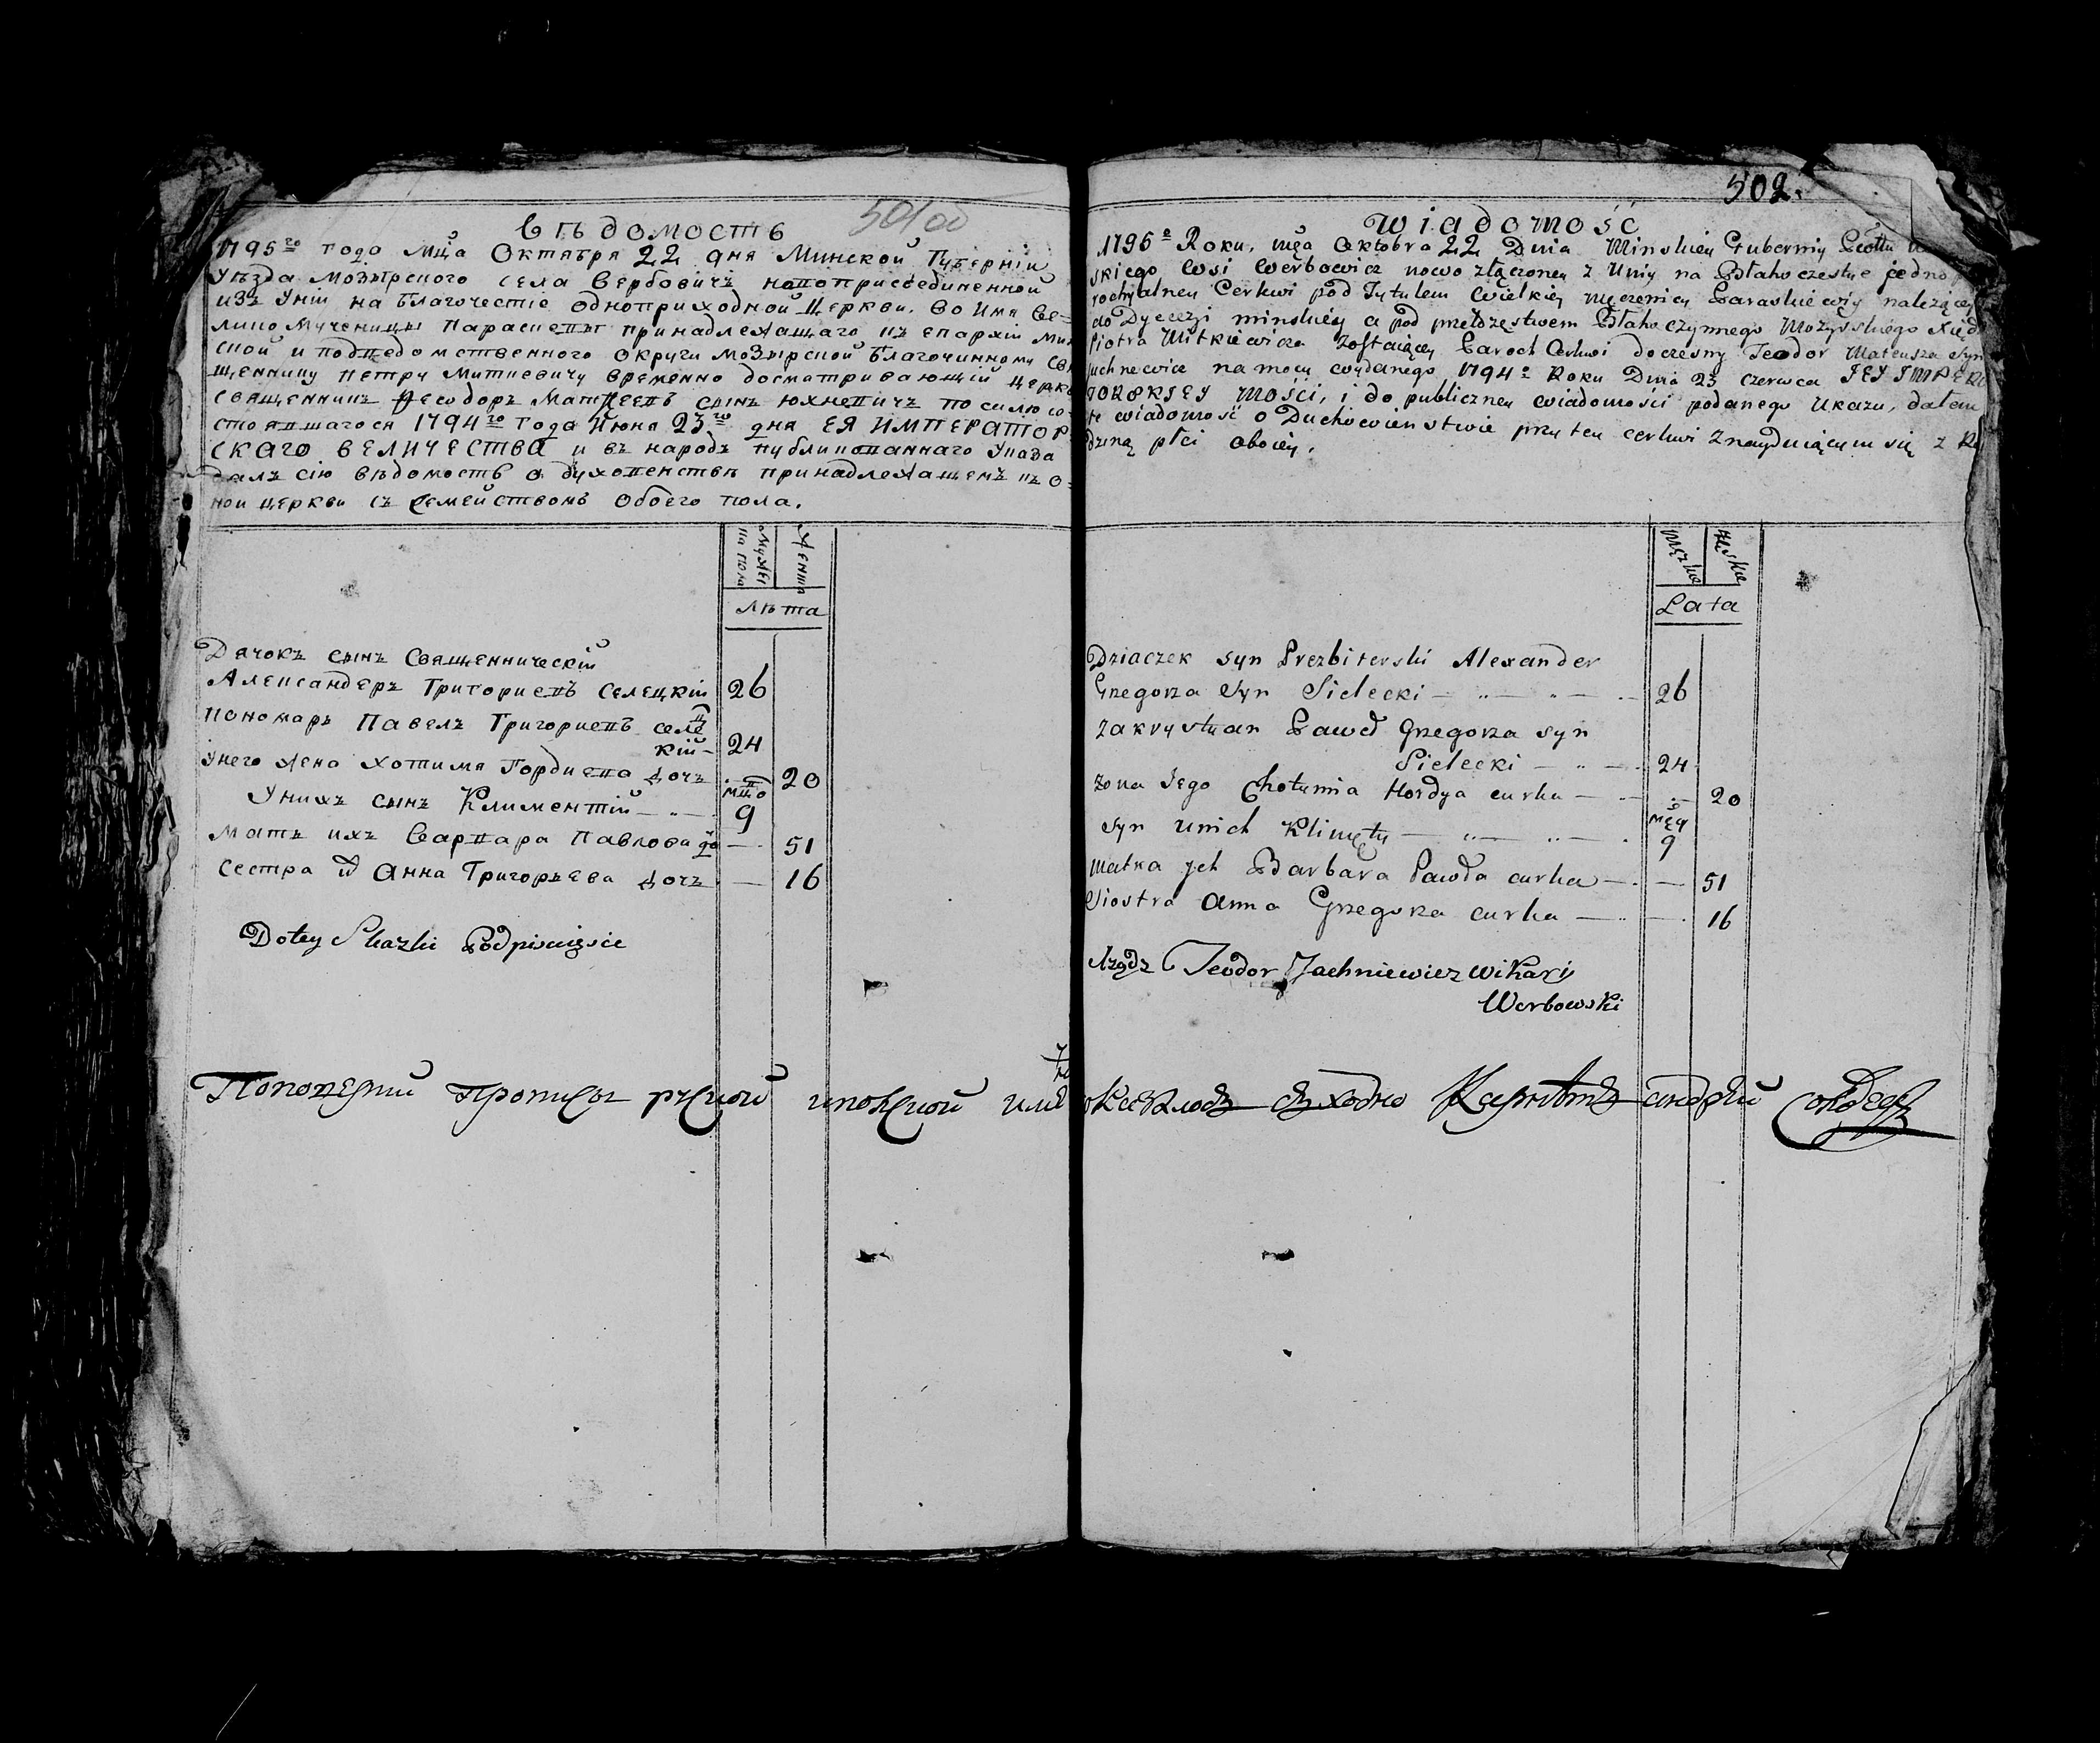 501 об
Вѣдомость
1795го года мца Октября 22 дня Минской Губерніи
Уѣзда мозырского села Вербовичъ новоприсоединенной
изъ Уніи на благочестіе одноприходной Церкви, во имя Ве=
лико Мученицы Параскевы принадлежащаго къ епархіи Мин
ской и подведомственного округи мозырской благочинному Свя
щеннику Петру Миткевичу временно досматривающій церко
священникъ Феодоръ Матфеевъ сынъ юхневичъ по силѣ со=
стоявшагося 1794го года Июня 23го дня ЕЯ ИМПЕРАТОР
СКАГО ВЕЛИЧЕСТВА и въ народъ публикованнаго Указа
далъ сію вѣдомость о духовенствѣ принадлежащемъ къ о=
ной церкви съ семействомъ обоего пола.
Мужес
ка пола
Женска
Лѣта
Дячокъ сынъ Священническій
Александеръ Григориевъ Селецкій 26
Пономарь Павелъ Григориевъ селец
кій 24
Унего жена Хотимя Гордиева дочь 20
Унихъ сынъ Климентій мцов 9
Мать ихъ Варвара Павлова до 51
Сестра Анна Григорьева дочь 16
Do tey Skazki Podpisuięsie
502.
Wiadomość
1795o Roku, mca Oktobra 22 Dnia Minskiey Guberniy Powiatu
skiego Wsi Werbowicz nowo złączoney z Uniy na Błahoczestye jedno
rochyalney Cerkwi pod Tytulem Wielkiey męczenicy Paraskiewiy należącey
do Dyecezyi minskiey a pod przełożestwem Błahoczynnego Mozyrskiego Xięd
Piotra Mitkiewicza zostaiącey Paroch Cerkwi doczesny Teodor Mateusza Syn
juchnewicz na mocy wydanego 1794o Roku Dnia 23 czerwca JEY IMPERA
TORSKIEY Mości, i do publiczney wiadomosci podanego Ukazu, dałem
te wiadomość o Duchowienstwie przy tey cerkwi znayduiącym się z Ro
dziną płci oboiey.
męzka
żęska
Lata
Dziaczek syn Prezbiterski Alexander
Grzegorza Syn Sielecki 26
Zakrystyan Paweł Grzegorza syn
Sielecki 24
Zona Jego Chotymia Hordya curka 20
Syn Unich Klimęty mcy 9
Matka ych Barbara Pawła curka 51
Siostra Anna Grzegorza curka 16
Xządz Teodor Jachniewicz wikary
Werbowski